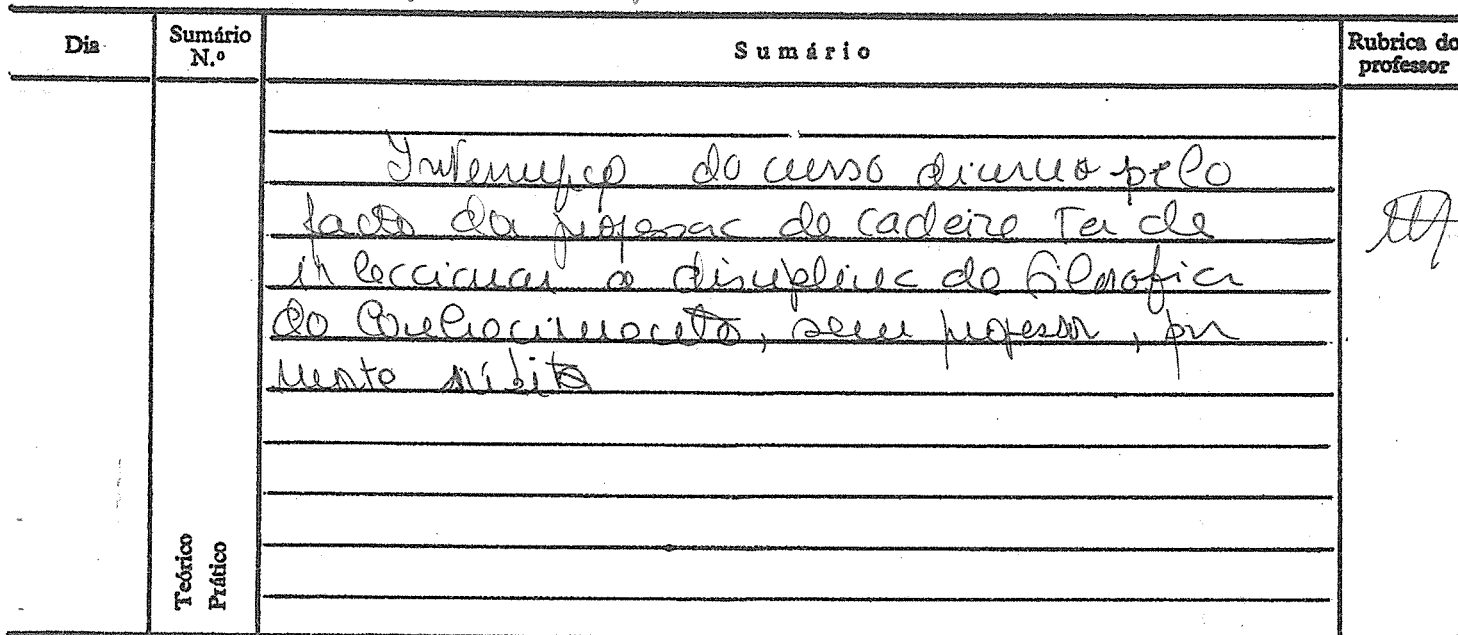 Dia
Sumário N.º
Sumário
Rubrica do professor
Interrupção do curso diurno pelo
facto da professora da cadeira ter de
ir leccionar a disciplina de Filosofia
do Conhecimento, sem professor, por
morte súbita
Teórico
Prático